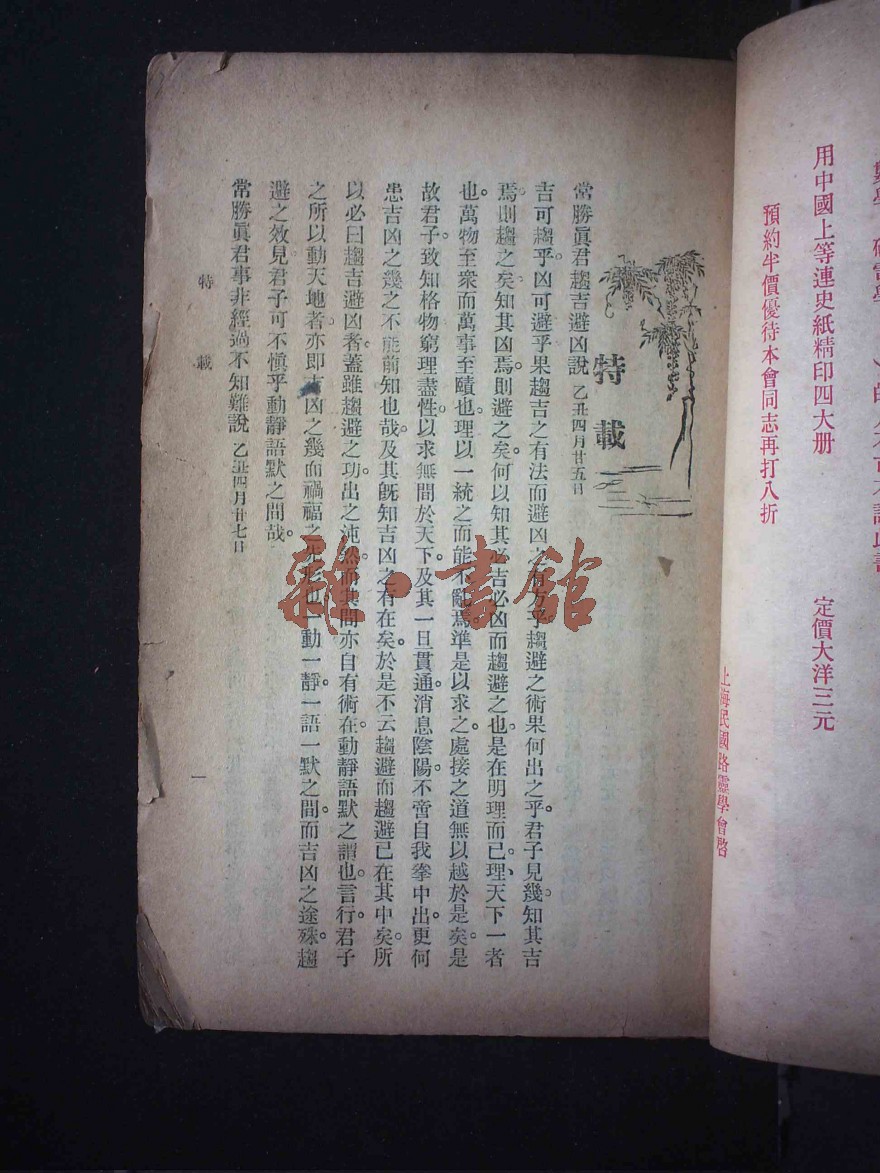 用中國上等連史紙精印四大册　定價大洋三元
預約半價優待本會同志再打八折
上海民國路靈學會啓
特載
常勝眞君趨吉避凶說 乙丑四月廿五日
吉可趨乎。凶可避乎。果趨吉之有法而避凶之有方乎。趨避之術果何出之乎。君子見幾。知其吉
焉。則趨之矣。知其凶焉。則避之矣。何以知其必吉必凶而趨避之也。是在明理而已。理天下一者
也。萬物至衆而萬事至賾也。理以一統之而能不亂焉。準是以求之。處接之道無以越於是矣。是
故君子致知格物窮理盡性。以求無間於天下。及其一旦貫通。消息陰陽。不啻自我拳中出。更何
患吉凶之幾之不能前知也哉。及其旣知吉凶之有在矣。於是不云趨避而趨避已在其中矣。所
以必曰趨吉避凶者。蓋雖趨避之功。出之沌然。而其間亦自有術在。動靜語默之謂也。言行。君子
之所以動天地者。亦即吉凶之幾而禍福之先形也。一動一靜。一語一默之間。而吉凶之途殊。趨
避之效見。君子可不愼乎動靜語默之間哉。
常勝眞君事非經過不知難說 乙丑四月廿七日
特載
一
雜·書館